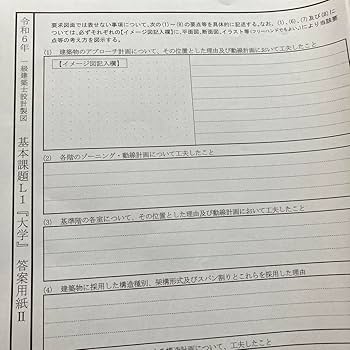 令和6年 一級建築士設計製図
基本課題L1『大学』 答案用紙Ⅱ
要求図面では表せない事項について、次の(1)~(8)の要点等を具体的に記述する。なお、(1)、(6)、(7)及び(8)に
ついては、必ずそれぞれの【イメージ図記入欄】に、平面図、断面図、イラスト等(フリーハンドでもよい。)により当該要
点等の考え方を図示する。
(1) 建築物のアプローチ計画について、その位置とした理由及び動線計画において工夫したこと
【イメージ図記入欄】
(2) 各階のゾーニング・動線計画について工夫したこと
(3) 基準階の各室について、その位置とした理由及び動線計画において工夫したこと
(4) 建築物に採用した構造種別、架構形式及びスパン割りとこれらを採用した理由
構造計画について工夫したこと